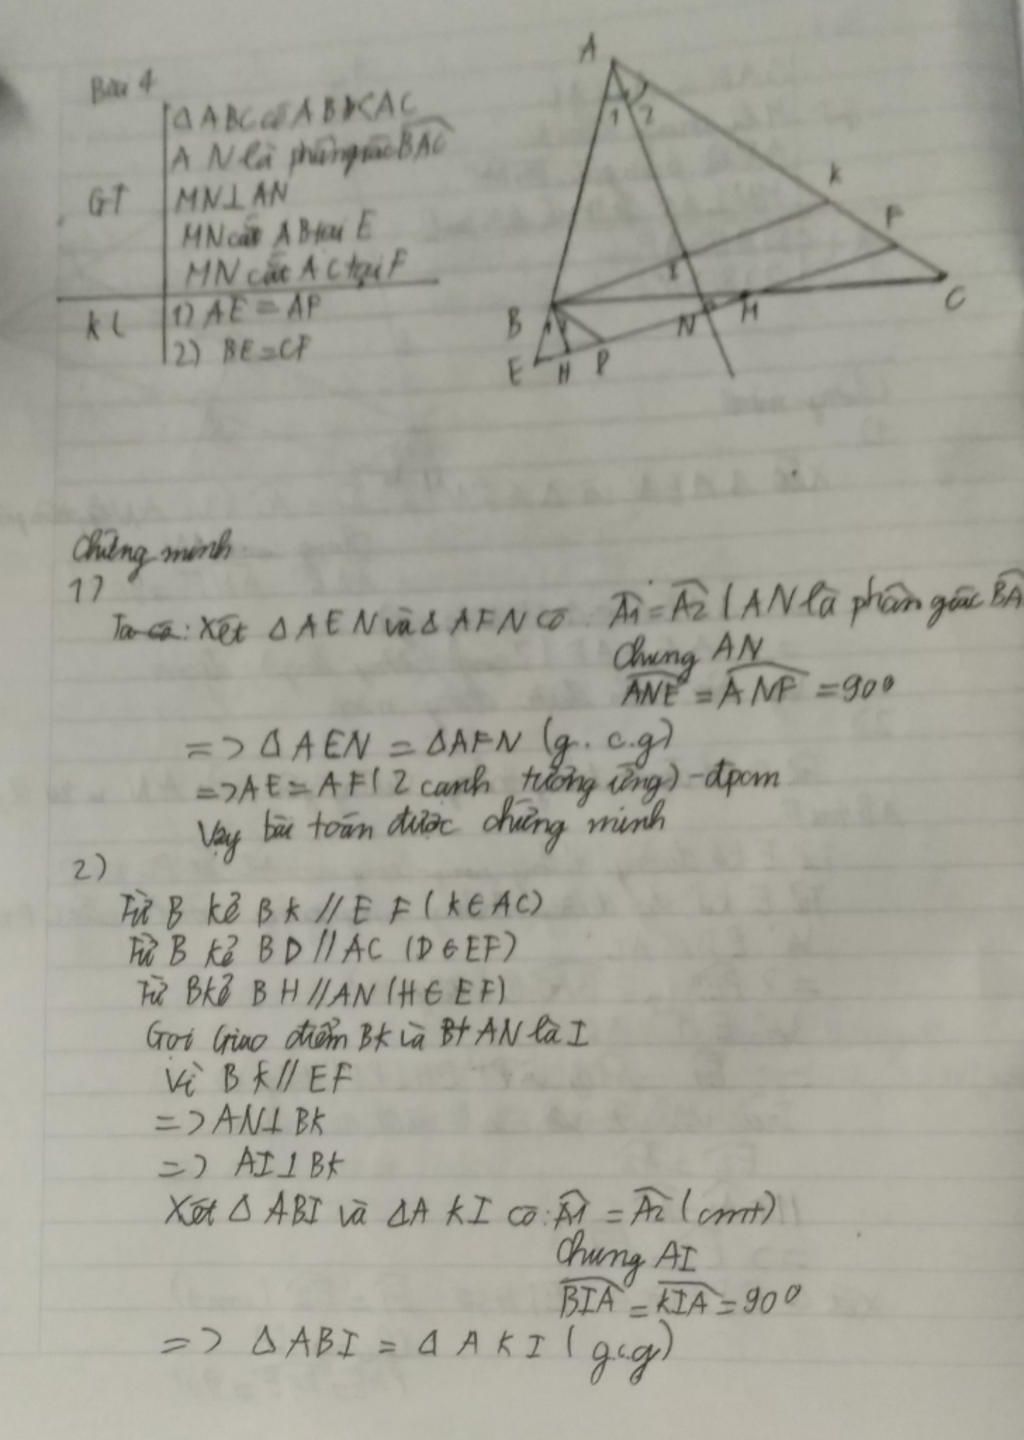 Bài 4
ΔABC có AB<AC
AN là phân giác BAC
GT MN⊥AN
MN cắt AB tại E
MN cắt AC tại F
KL 1) AE = AF
2) BE = CF
A
1 2
K
F
I
B
N M C
E H P
Chứng minh
1)
Ta có: Xét ΔAEN và ΔAFN có: A1 = A2 (AN là phân giác BA
Chung AN
ANE = ANF = 90°
=> ΔAEN = ΔAFN (g.c.g)
=> AE = AF (2 cạnh tương ứng) - đpcm
Vậy bài toán được chứng minh
2)
Từ B kẻ BK // EF (K∈AC)
Từ B kẻ BD // AC (D∈EF)
Từ B kẻ BH // AN (H∈EF)
Gọi giao điểm BK và AN là I
Vì BK // EF
=> AN⊥BK
=> AI⊥BK
Xét ΔABI và ΔAKI có: A1 = A2 (cmt)
Chung AI
BIA = KIA = 90°
=> ΔABI = ΔAKI (g.c.g)